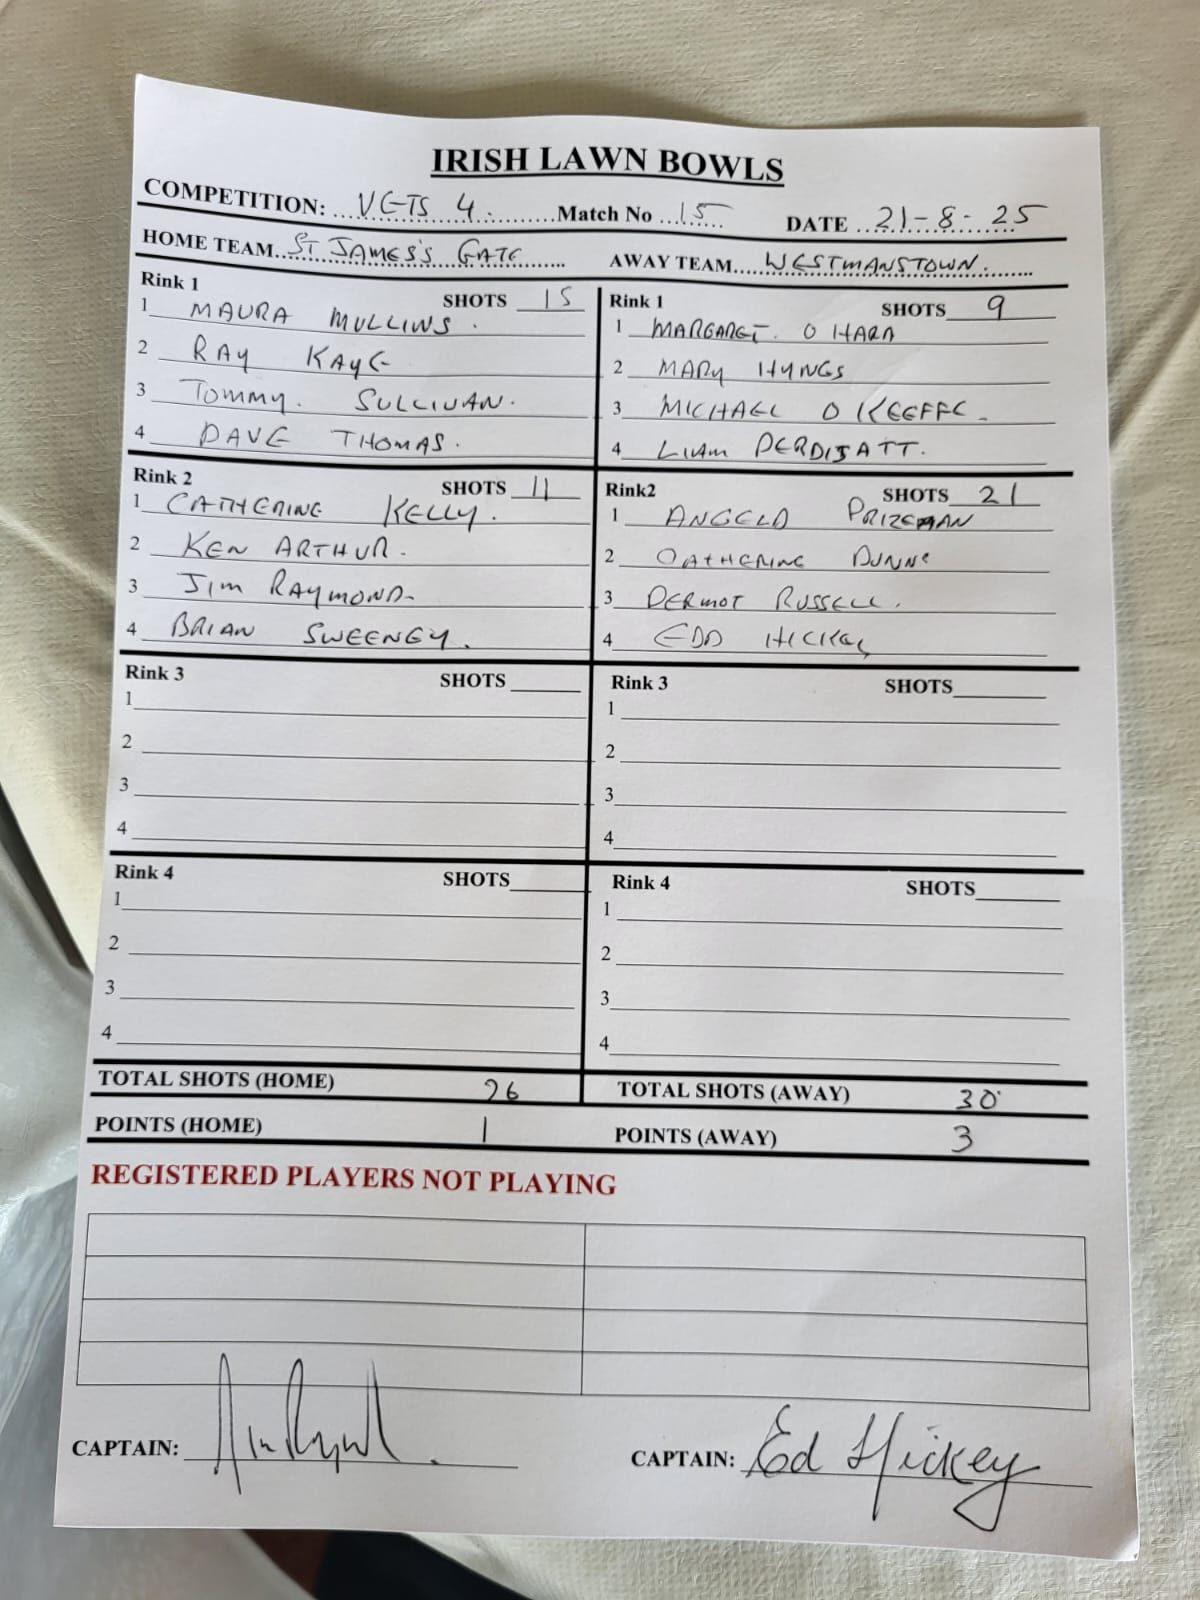 IRISH LAWN BOWLS
COMPETITION: VETS 4. Match No 15 DATE 21-8-25
HOME TEAM ST JAMES'S GATE AWAY TEAM WESTMANSTOWN.
Rink 1 SHOTS 15
1 MAURA MULLINS.
2 RAY KAYE
3 TOMMY. SULLIVAN.
4 DAVE THOMAS.
Rink 1 SHOTS 9
1 MARGARET. O HARA
2 MARY HYNES
3 MICHAEL O KEEFFE.
4 LIAM
Rink 2 SHOTS 11
1 CATHERINE KELLY.
2 KEN ARTHUR.
3 JIM RAYMOND.
4 BRIAN SWEENEY.
Rink2 SHOTS 21
1 ANGELA PRIZEMAN
2 CATHERINE DUNNE
3 DERMOT RUSSELL.
4 EDD HICKEY
Rink 3 SHOTS
1
2
3
4
Rink 3 SHOTS
1
2
3
4
Rink 4 SHOTS
1
2
3
4
Rink 4 SHOTS
1
2
3
4
TOTAL SHOTS (HOME) 26 TOTAL SHOTS (AWAY) 30
POINTS (HOME) 1 POINTS (AWAY) 3
REGISTERED PLAYERS NOT PLAYING
CAPTAIN: CAPTAIN: Ed Hickey